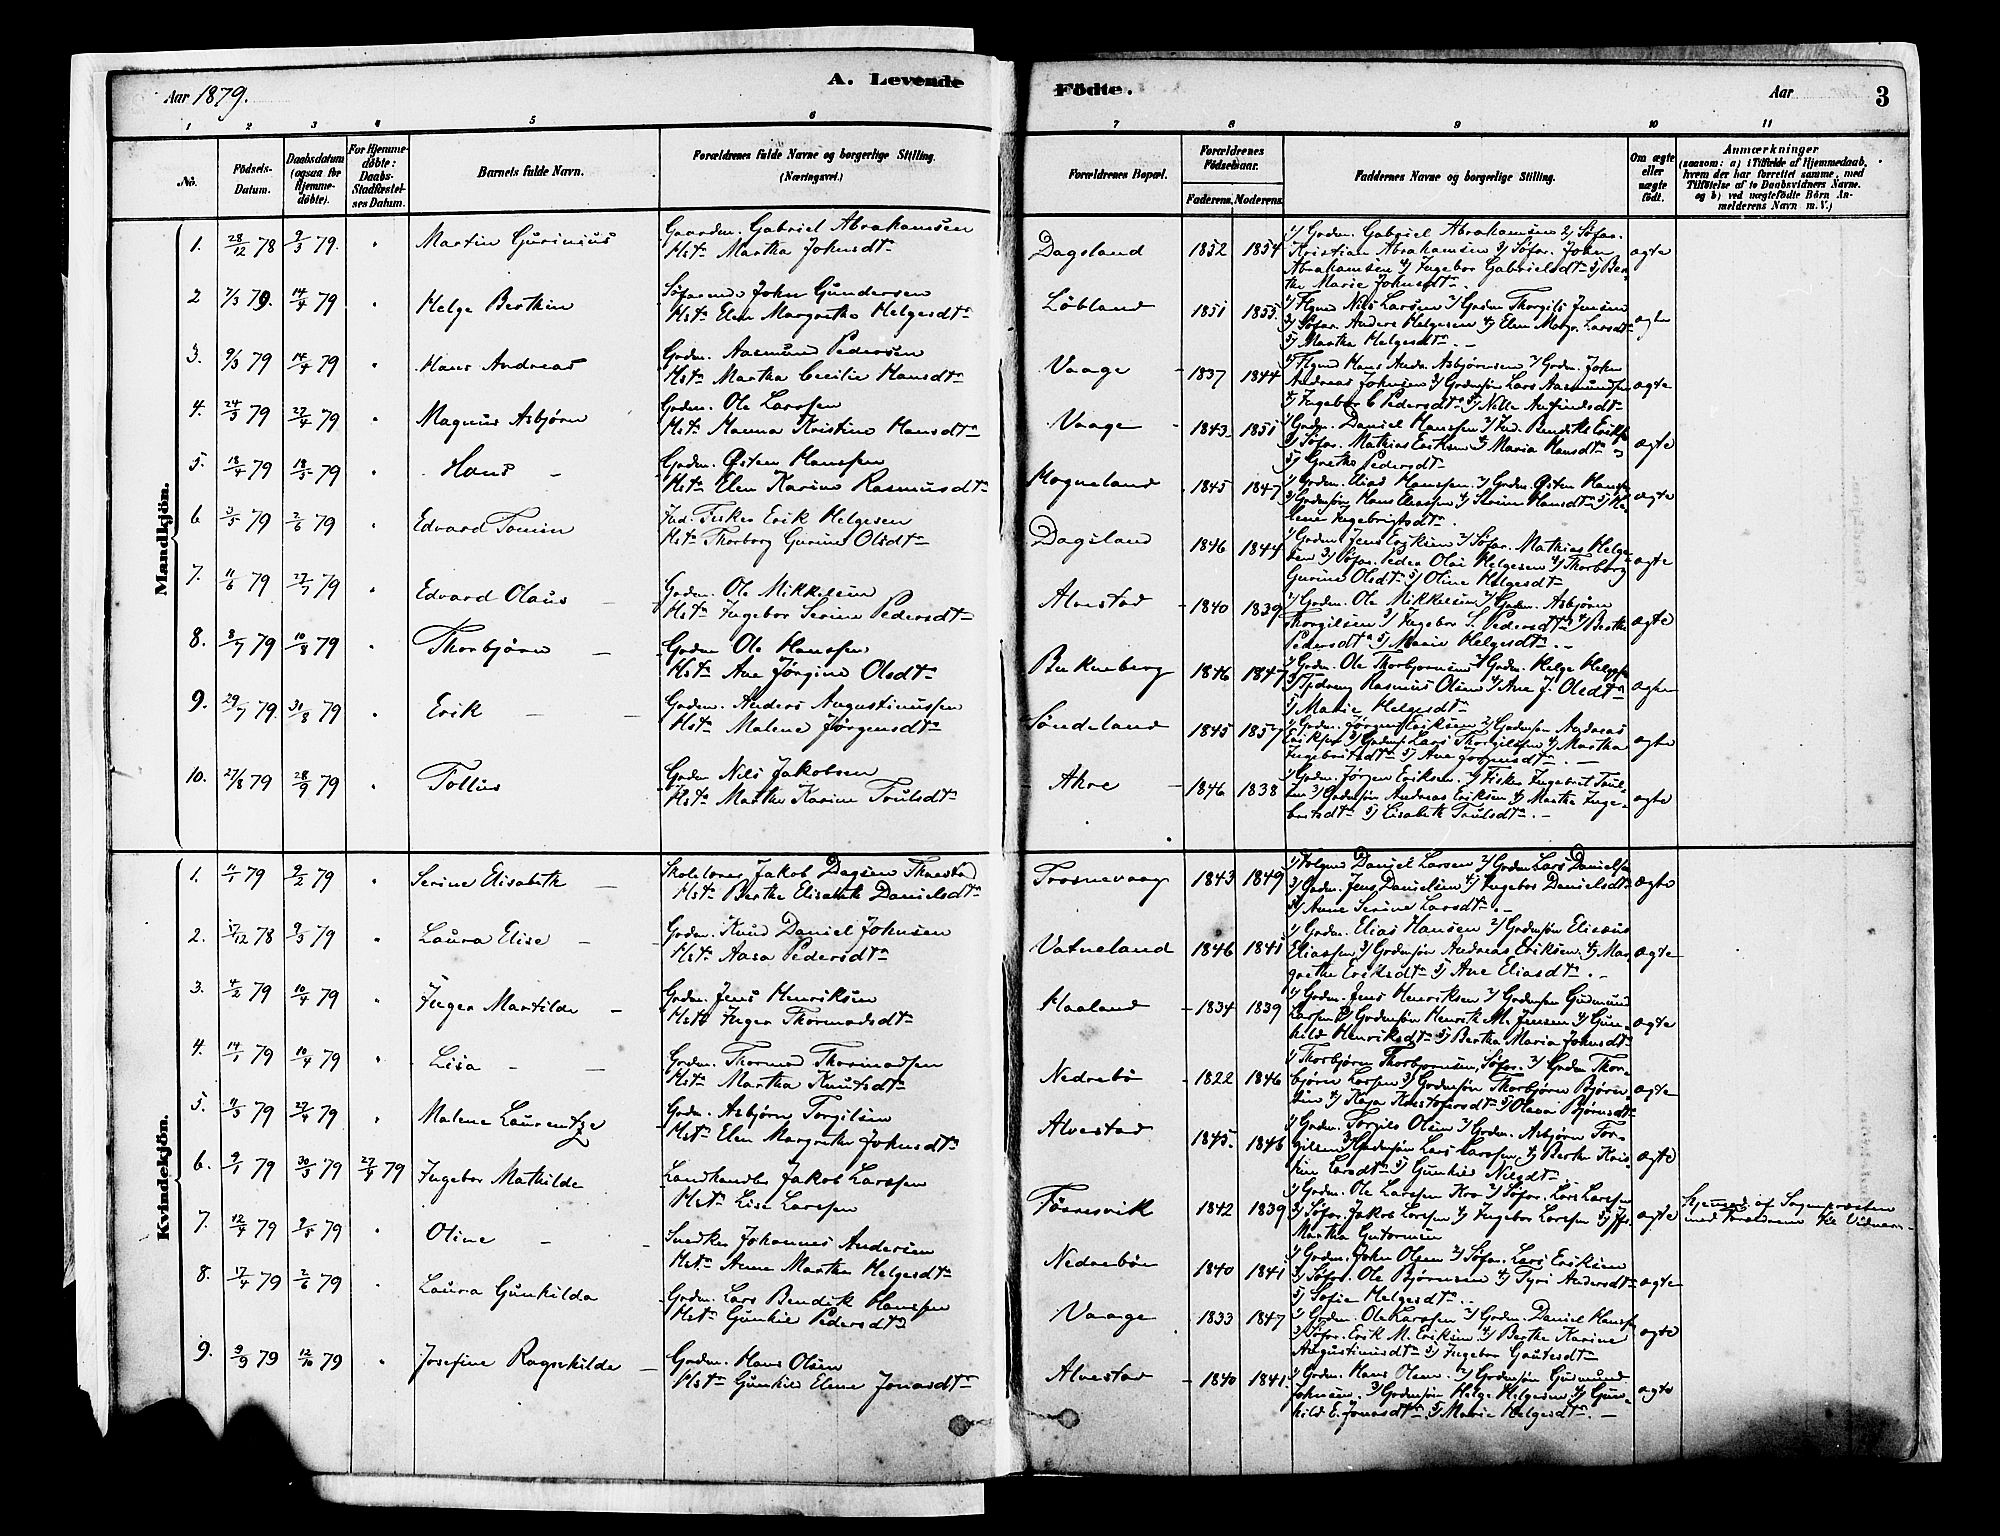 A. Levende
Födte.
Aar 1879.
Aar
3
1 2 3 4 5 6
7 8 9 10 11
No.
Födsels-Datum.
Daabsdatum (ogsaa for Hjemme-döbte).
For Hjemme-døbte: Daabs-Stadfæstel-ses Datum.
Barnets fulde Navn.
Forældrenes fulde Navne og borgerlige Stilling.
(Næringsvei.)
Forældrenes Bopæl.
Forældrenes Födselsaar.
Faderens. Moderens.
Faddernes Navne og borgerlige Stilling.
Om ægte eller uægte födt.
Anmærkninger
(saasom: a) i Tilfælde af Hjemmedaab,
hvem der har forrettet samme, med
Tilföielse af to Daabsvidners Navne,
og b) ved uægtefödte Börn An-
melderens Navn m. V.)
Mandkjön.
1. 28/12 78 9/3 79. " Martin Gurinius
Gaardm. Gabriel Abrahamsen
Hst. Martha Johnsdtr
Dagsland 1852 1854
1/ Grdm. Gabriel Abrahamsen 2/ Søfar.
Kristian Abrahamsen 3/ Søfar. John
Abrahamsen 4/ Ingebor Gabrielsdtr 5/ Ber-
the Marie Johnsdtr.
ægte
2 7/3 79. 14/4 79 " Helge Berthin
Søfarende John Gundersen
Hstr Elen Margrethe Helgesdtr
Løbland 1851 1855.
Nils Larsen 2/ Grdm Thorgils Jensen
3/ Søfar. Anders Helgesen 4/ Elen Margr. Larsdtr
5/ Martha Helgesdtr. -
ægte
3. 9/3 79 14/4 79 " Hans Andreas
Grdm. Aasmund Pedersen
Hstr Martha Cecilie Hansdtr
Vaage - 1837 1844
Hans Andr. Asbjørnsen 2/ Grdm. John
Andreas Johnsen 3/ Grdmsøn Lars Aasmundsen
4/ Ingebor C Pedersdtr 5/ Nille Anfindsdtr
ægte
4. 24/3 79 27/4 79 " Magnus Asbjørn
Grdm. Ole Larssen
Hstr Hanna Kristine Hansdtr
Vaage - 1843. 1851
1/ Grdm. Daniel Hanssen 2/ Ind. Bendikt Eriksen
3/ Søfar. Mathias Eriksen 4/ Maria Hansdtr
5/ Grethe Pedersdtr
ægte
5. 18/4 79 18/5 79 " Hans -
Grdm. Østen Hanssen
Hstr Elen Karine Rasmusdtr
Mogneland 1845 1847
1/ Grdm. Elias Hanssen. 2/ Grdm. Østen Hanssen
3/ Grdmsøn Hans 4/ Serine Hansdtr 5/ He-
lene Ingebrigtsdtr.
ægte
6 3/5 79 2/6 79 " Edvard Tomin
Ind. Fisker Erik Helgesen
Hstr Thorborg Gurine Olsdtr
Dagsland 1846 1844
1/ Grdm. Jens Eriksen 2/ Søfar. Mathias Helge-
sen 3/ Søfar. Peder Olai Helgesen 4/ Thorborg
Gurine Olsdtr 5/ Oline Helgesdtr
ægte
7. 11/6 79 27/7 79 " Edvard Olaus -
Grdm. Ole Mikkelsen
Hstr Ingebor Serine Pedersdtr
Alvestad - 1840 1839
1/ Grdm. Ole Mikkelsen 2/ Grdm. Asbjørn
Thorgilsen 3/ Ingebor S. Pedersdtr 4/ Berthe
Pedersdtr 5/ Marie Helgesdtr. -
ægte
8. 8/7 79 10/8 79 " Thorbjørn -
Grdm Ole Hanssen
Hstr Ane Jørgine Olsdtr
1846 1847
1/ Grdm. Ole Thorbjørnsen 2/ Grdm. Helge Helgesen
Rasmus Olsen 4/ Ane J. Olsdtr
5/ Marie Helgesdtr
ægte
9. 29/7 79. 31/8 79 " Erik - -
Grdm. Anders Augustinussen
Hstr Malene Jørgensdtr
Søndeland 1845 1857
1/ Grdm. Jørgen Eriksen 2/ Grdmsøn Andreas
Eriksen 3/ Grdmsøn Lars Thorgilsen 4/ Martha
Ingebretsdtr 5/ Ane Jørgensdtr. -
ægte
10. 27/8 79 28/9 79 " Tollius
Grdm Nils Jakobsen
Hstr Martha Karine Troulsdtr
Ahre - 1846 1838
1/ Grdm. Jørgen Eriksen. 2/ Fisker Ingebret Troul-
sen 3/ Grdmsøn Andreas Eriksen 4/ Martha Inge-
bretsdtr 5/ Lisabeth Troulsdtr. -
ægte
Kvindekjön.
1. 11/1 79 9/2 79 " Serine Elisabeth -
Skolelærer Jakob Dagsen
Hstr Berthe Elisabeth Danielsdtr
Trosnevaag 1843 1849
Daniel Larsen 2/ Grdm Lars Danielsen
3/ Grdm. Jens Danielsen 4/ Ingebor Danielsdtr
5/ Anne Serine Larsdtr. -
ægte
2. 17/12 78 9/3 79 " Laura Elise -
Grdm. Knud Daniel Johnsen
Hstr Aasa Pedersdtr
Vatneland 1846 1841
1/ Grdm. Elias Hansen 2/ Grdmsøn Elisæus
Eliassen 3/ Grdmsøn Andreas Eriksen 4/ Mar-
grethe Eriksdtr 5/ Ane Eliasdtr. -
ægte
3. 4/2 79 10/4 79 " Inger Martilde -
Grdm. Jens Henriksen
Hstr Inger Thormodsdtr
Haaland - 1834 1839
1/ Grdm. Jens Henriksen 2/ Grdmsøn Gudmund
Larsen 3/ Grdmsøn Henrik M. Jensen 4/ Gun-
hild Henriksdtr 5/ Bertha Maria Johnsdtr
ægte
4. 14/1 79 10/4 79 " Lisa - -
Grdm. Thormod Thormodsen
Hstr Martha Knutsdtr
Nedrebø - 1822 1846
1/ Thorbjørn Thorbjørnsen, Søfar. 2/ Grdm Thor-
bjørn Larsen 3/ Grdmsøn Thorbjørn Bjørn-
sen 4/ Kaja Kristofersdtr 5/ Olava Bjørnsdtr
ægte
5. 9/3 79 27/4 79 " Malene Laurentze
Grdm. Asbjørn Torgilsen
Hstr Elen Margrethe Johnsdtr
Alvestad 1845. 1846
1/ Grdm. Torgils Olsen 2/ Grdm. Asbjørn Tor-
gilsen 3/ Grdmsøn Lars Larssen, 4/ Berthe Kris-
tine Larsdtr 5/ Gunhild Nilsdtr.
ægte
6. 9/1 79 30/3 79 27/4 79 Ingebor Mathilde
Landhandler Jakob Larssen
Hstr Lisa Larssen
Føresvik 1842 1839
1/ Grdm. Ole Larssen Kro 2/ Søfar. Lars Larssen
3/ Søfar. Jakob Larssen 4/ Ingebor Larssen 5/
Martha Gutormsen
ægte
af Sognepræsten
med Forældrene til Vidner. -
7. 12/4 79 9/5 79 " Oline - -
Snedker Johannes Andersen
Hstr Anne Martha Helgesdtr
Nedrebø 1840 1841
1/ Grdm. John Olsen 2/ Søfar. Lars Eriksen
3/ Søfar. Ole Bjørnsen 4/ Tyri Andersdtr
5/ Sofie Helgesdtr. -
ægte
8. 17/4 79 2/6 79 " Laura Gunhilda
Grdm. Lars Bendik Hanssen
Hstr Gunhild Pedersdtr
Vaage 1833 1847
1/ Grdm. Ole Larssen 2/ Grdm. Daniel Hanssen
3/ Søfar. Erik M. Eriksen 4/ Berthe Karine
Augustinusdtr 5/ Ingebor Gautesdtr
ægte
9. 9/9 79 12/10 79 " Josefine Ragnhilde -
Grdm. Hans Olsen
Hstr Gunhild Elene Jonasdtr
Alvestad - 1840 1841.
1/ Grdm. Hans Olsen. 2/ Grdmsøn Gudmund
Johnsen. 3/ Grdmsøn Helge Helgesen 4/ Gun-
hild E. Jonasdtr 5/ Marie Helgesdtr. -
ægte